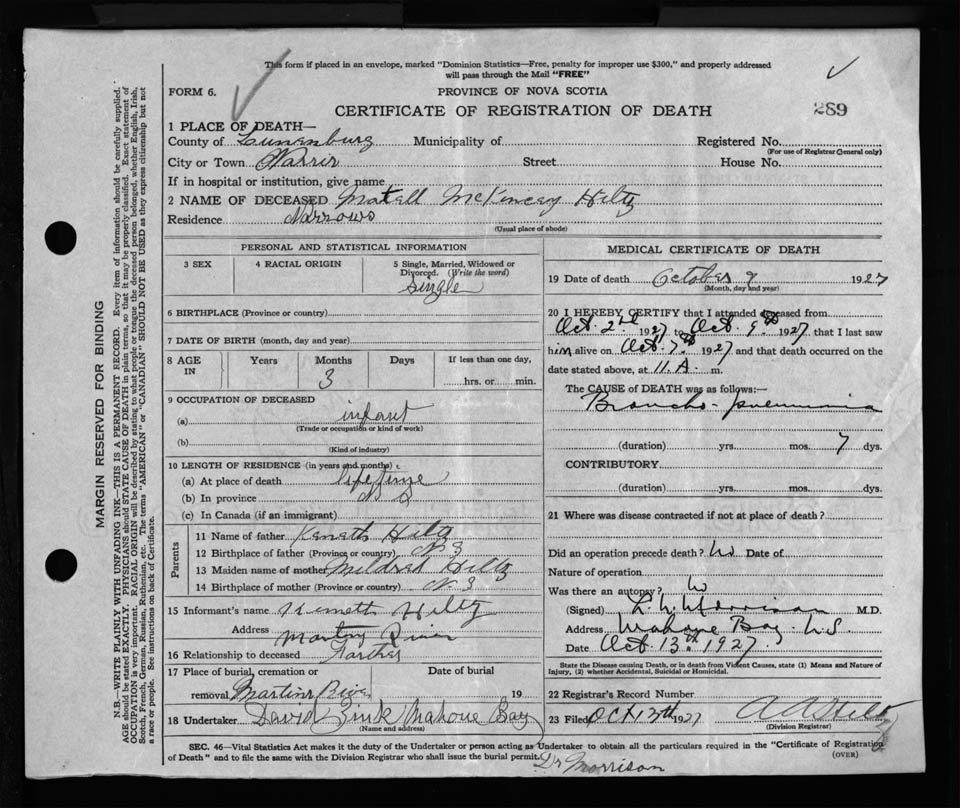 This form if placed in an envelope, marked "Dominion Statistics—Free, penalty for improper use $300," and properly addressed
will pass through the Mail "FREE"
FORM 6.
PROVINCE OF NOVA SCOTIA
CERTIFICATE OF REGISTRATION OF DEATH
289
1 PLACE OF DEATH—
County of Lunenburg Municipality of Registered No.
(For use of Registrar General only)
City or Town Street House No.
If in hospital or institution, give name
2 NAME OF DECEASED McKincey Hiltz
Residence Narrows
(Usual place of abode)
PERSONAL AND STATISTICAL INFORMATION
3 SEX 4 RACIAL ORIGIN 5 Single, Married, Widowed or
Divorced. (Write the word)
Single
6 BIRTHPLACE (Province or country)
7 DATE OF BIRTH (month, day and year)
8 AGE IN Years Months Days If less than one day,
3 hrs. or min.
9 OCCUPATION OF DECEASED
(a) infant
(Trade or occupation or kind of work)
(b)
(Kind of industry)
10 LENGTH OF RESIDENCE (in years and months)
(a) At place of death life time
(b) In province
(c) In Canada (if an immigrant)
Parents
11 Name of father Keneth Hiltz
12 Birthplace of father (Province or country) N S
13 Maiden name of mother Mildred Hiltz
14 Birthplace of mother (Province or country) N S
15 Informant's name Kenneth Hiltz
Address River
16 Relationship to deceased Farther
17 Place of burial, cremation or Date of burial
removal Martins River 19
18 Undertaker David Zink Mahone Bay
(Name and address)
MEDICAL CERTIFICATE OF DEATH
19 Date of death October 9 1927
(Month, day and year)
20 I HEREBY CERTIFY that I attended deceased from
Oct. 2nd 1927 to Oct. 9th 1927 that I last saw
him alive on Oct. 7th 1927 and that death occurred on
the date stated above, at 11 A. m.
The CAUSE of DEATH was as follows:—
Broncho-pneumonia
(duration) yrs. mos. 7 dys.
CONTRIBUTORY
(duration) yrs. mos. dys.
21 Where was disease contracted if not at place of death?
Did an operation precede death? No Date of
Nature of operation
Was there an autopsy? No
(Signed) Morrison M.D.
Address Mahone Bay N.S.
Date Oct. 13th 1927.
State the Disease causing Death, or in death from Violent Causes, state (1) Means and Nature of
Injury, (2) whether Accidental, Suicidal or Homicidal.
22 Registrar's Record Number
23 Filed Oct 13th 1927
(Division Registrar)
SEC. 46—Vital Statistics Act makes it the duty of the Undertaker or person acting as Undertaker to obtain all the particulars required in the "Certificate of Registration
of Death" and to file the same with the Division Registrar who shall issue the burial permit.
(OVER)
Dr Morrison
MARGIN RESERVED FOR BINDING
N.B.—WRITE PLAINLY WITH UNFADING INK—THIS IS A PERMANENT RECORD. Every item of information should be carefully supplied.
AGE should be stated EXACTLY. PHYSICIANS should STATE CAUSE OF DEATH in plain terms, so that it may be properly classified. Exact statement of
OCCUPATION is very important. RACIAL ORIGIN will be described by stating to what people or tongue the deceased person belonged, whether English, Irish,
Scotch, French, German, Russian, Ruthenian, etc. The terms "AMERICAN" or "CANADIAN" SHOULD NOT BE USED as they express citizenship but not
a race or people. See instructions on back of Certificate.